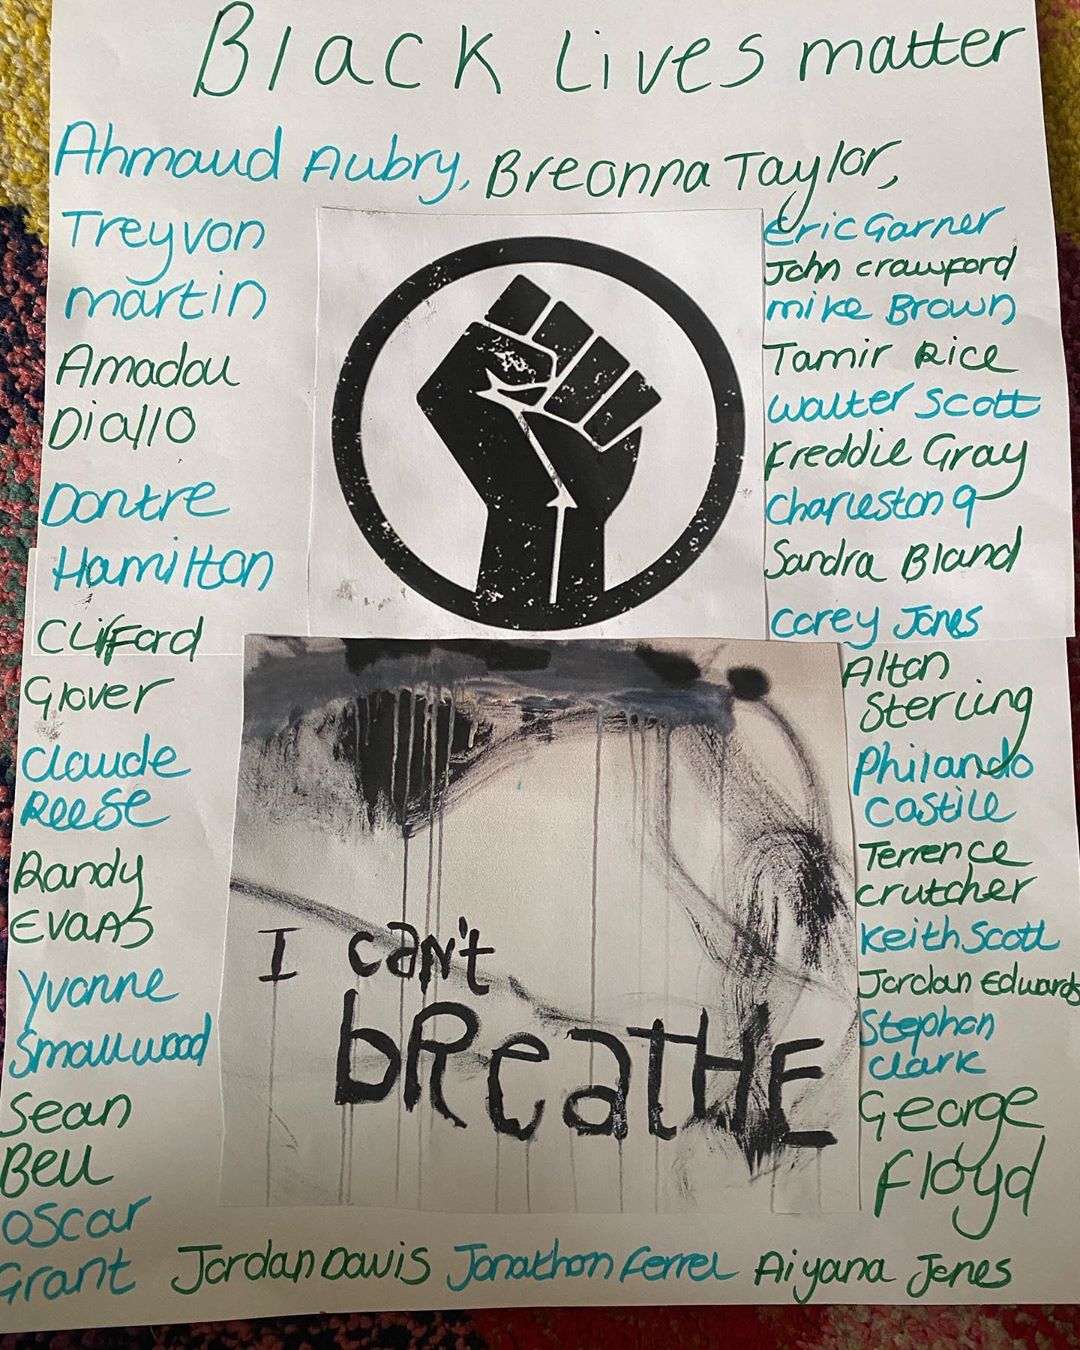 Black Lives matter
Ahmaud Aubry, Breonna Taylor,
Treyvon
martin
Amadou
Diallo
Dontre
Hamilton
Clifford
Glover
Claude
Reese
Randy
Evans
Yvonne
Smallwood
Sean
Bell
oscar
Grant
Eric Garner
John crawford
mike Brown
Tamir Rice
Walter Scott
Freddie Gray
Charleston 9
Sandra Bland
Corey Jones
Alton
Sterling
Philando
Castile
Terrence
crutcher
Keith Scott
Jordan Edwards
Stephon
Clark
George
Floyd
I can't
bReatHE
Jordan Davis Jonathon Ferrel Aiyana Jones